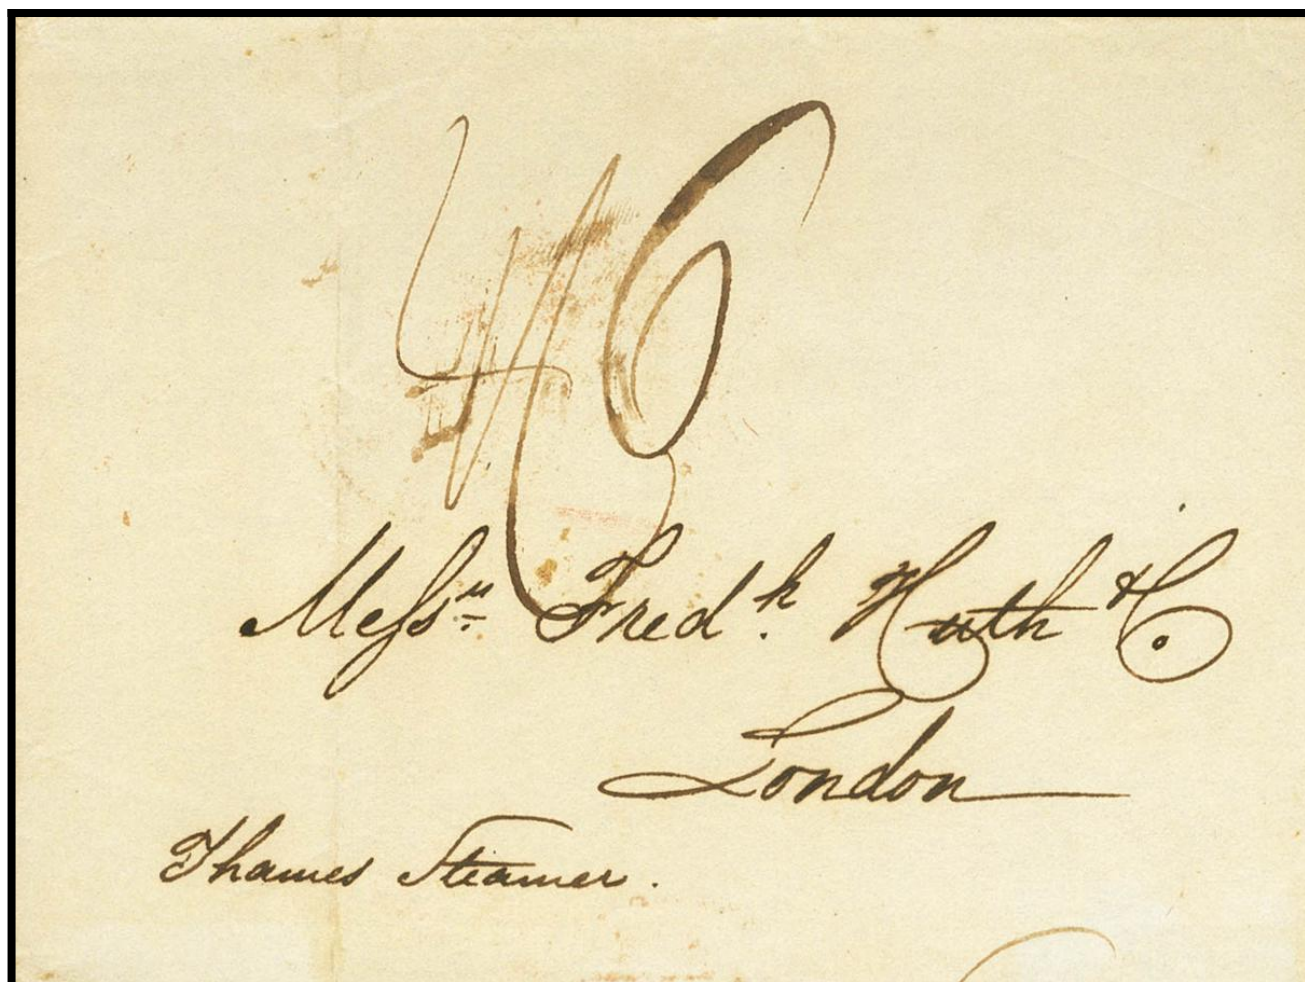 Messrs. Fredk. Huth & Co.
London
Thames Steamer.